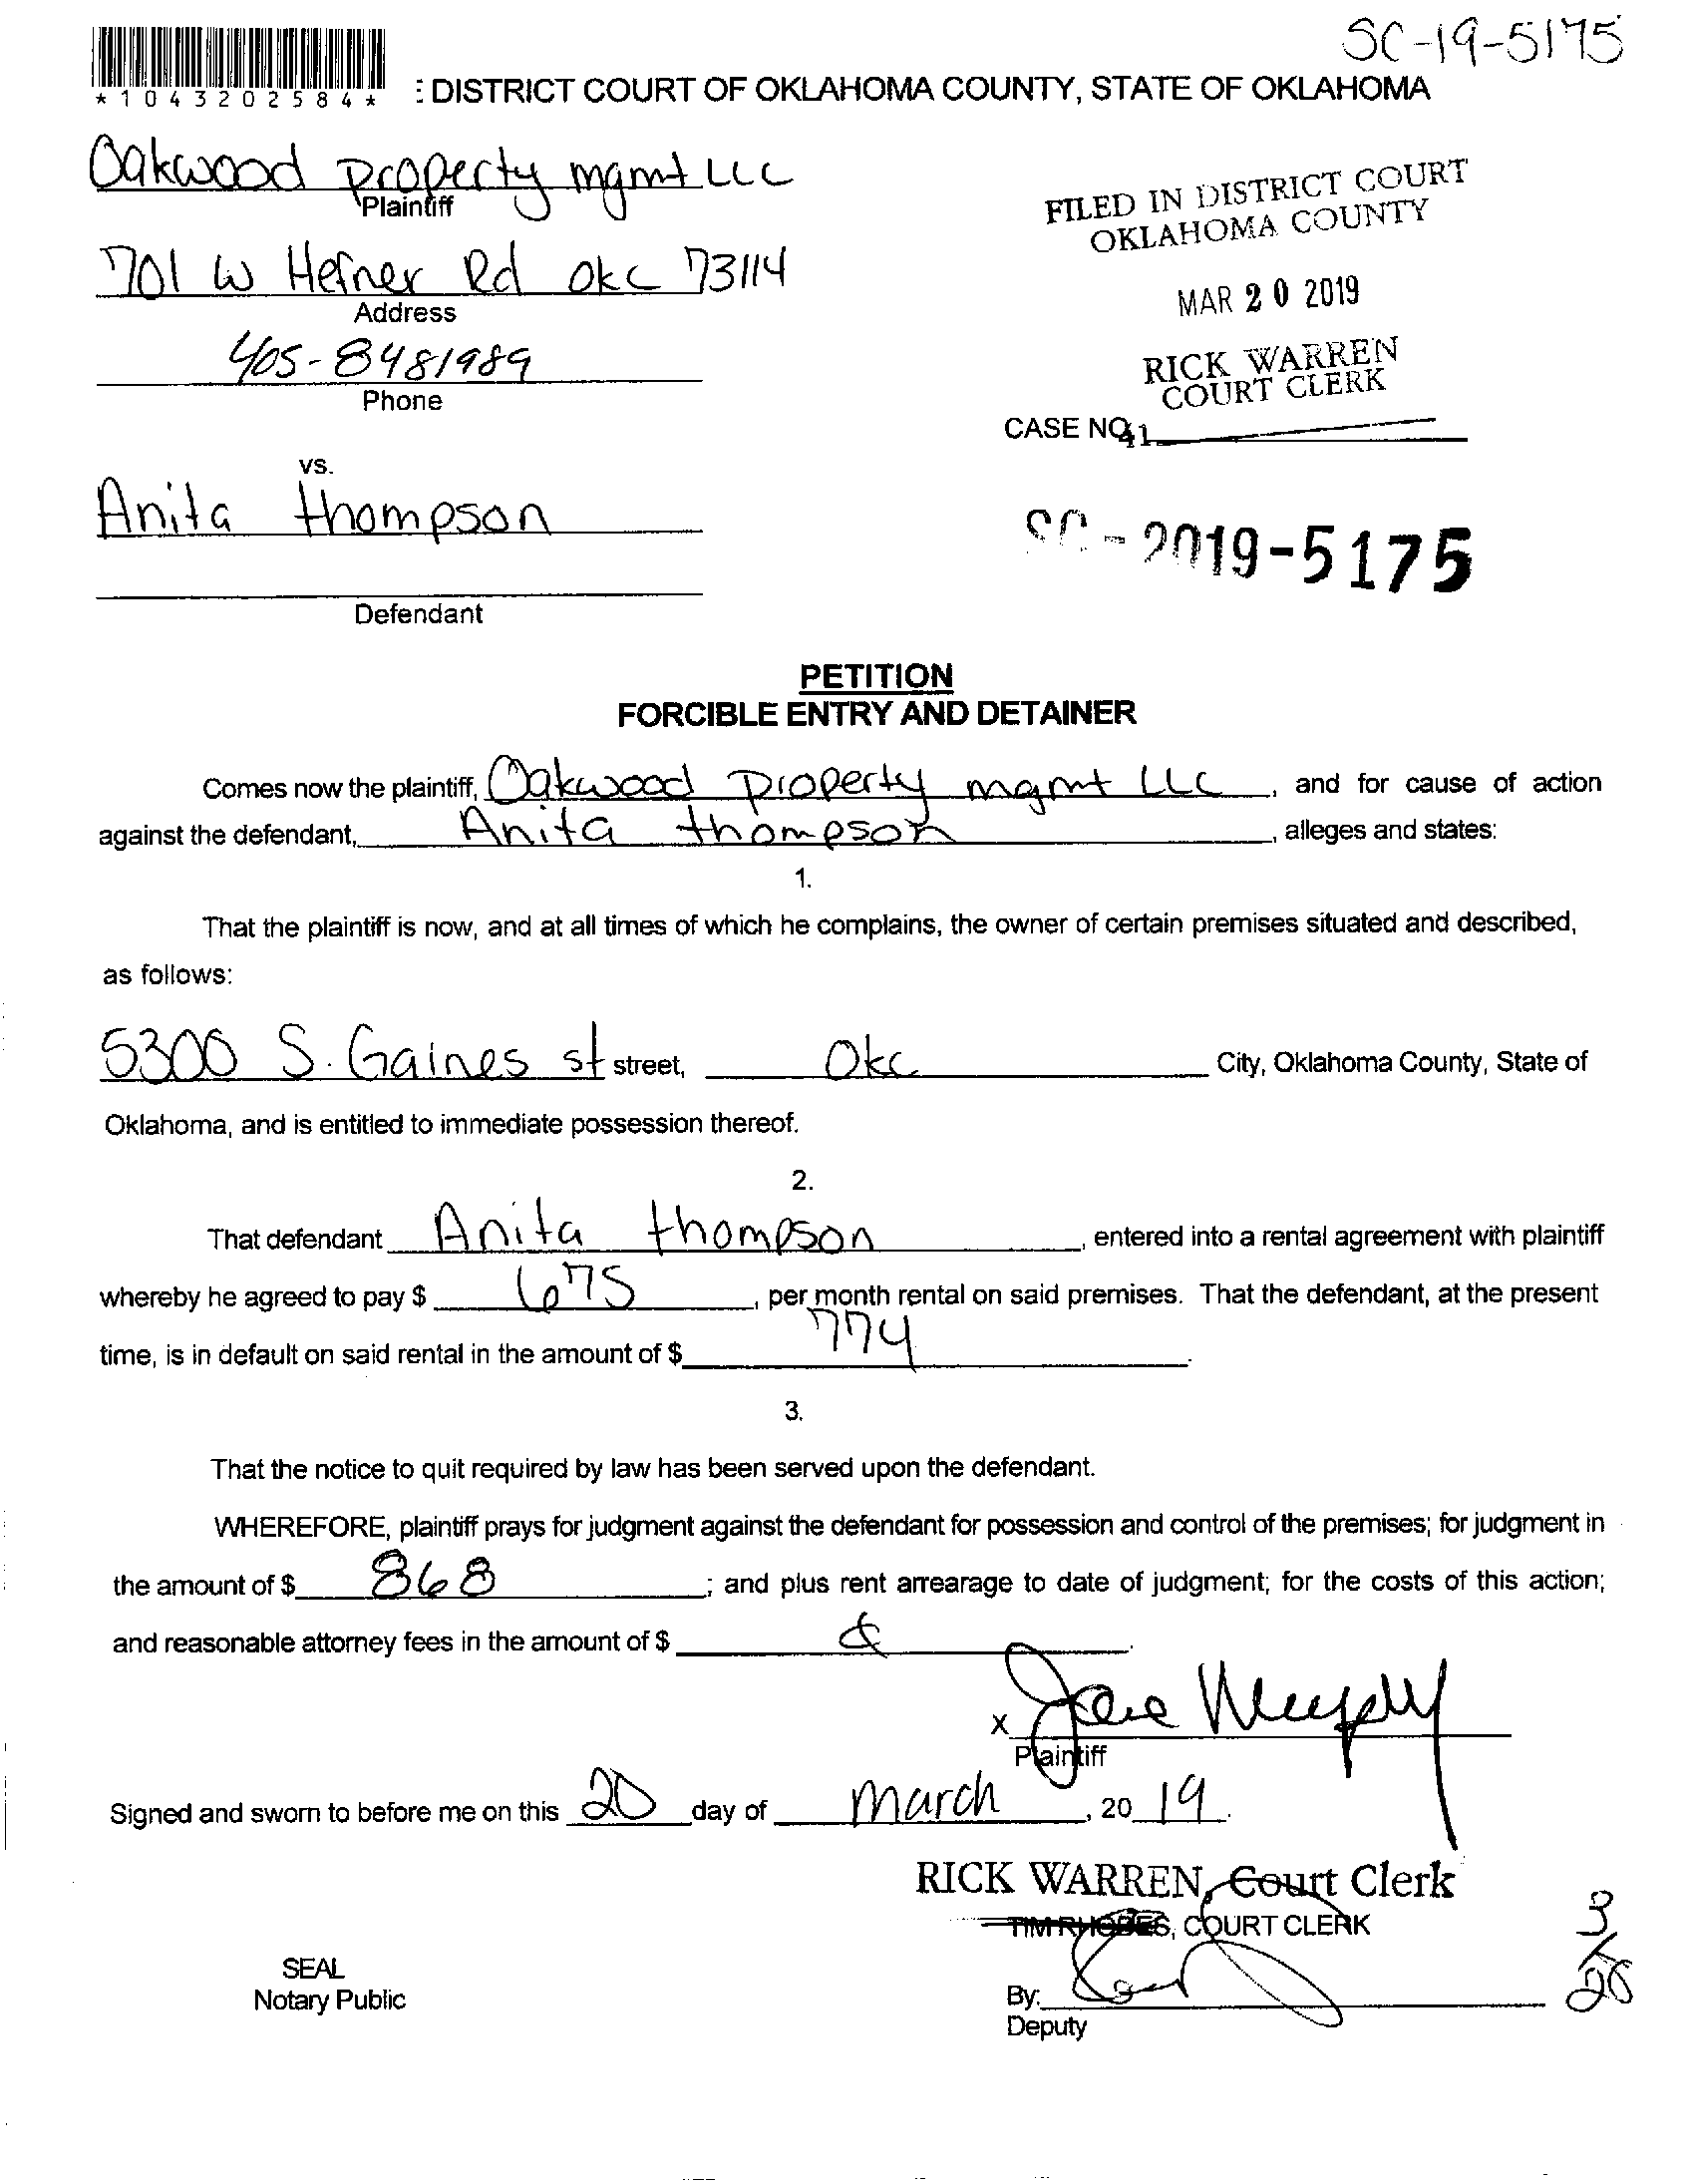 SC-19-5175
*1043202584*
: DISTRICT COURT OF OKLAHOMA COUNTY, STATE OF OKLAHOMA
Oakwood property mgmt LLC
Plaintiff
701 W Hefner Rd OKC 73114
Address
405-8481989
Phone
FILED IN DISTRICT COURT
OKLAHOMA COUNTY
MAR 20 2019
RICK WARREN
COURT CLERK
CASE NO. 41
vs.
Anita thompson
SC-2019-5175
Defendant
PETITION
FORCIBLE ENTRY AND DETAINER
Comes now the plaintiff, Oakwood property mgmt LLC, and for cause of action
against the defendant, Anita thompson, alleges and states:
1.
That the plaintiff is now, and at all times of which he complains, the owner of certain premises situated and described,
as follows:
5300 S. Gaines st street, Okc City, Oklahoma County, State of
Oklahoma, and is entitled to immediate possession thereof.
2.
That defendant Anita thompson, entered into a rental agreement with plaintiff
whereby he agreed to pay $ 675, per month rental on said premises. That the defendant, at the present
time, is in default on said rental in the amount of $ 774.
3.
That the notice to quit required by law has been served upon the defendant.
WHEREFORE, plaintiff prays for judgment against the defendant for possession and control of the premises; for judgment in
the amount of $ 868; and plus rent arrearage to date of judgment; for the costs of this action;
and reasonable attorney fees in the amount of $
X Murphy
Plaintiff
Signed and sworn to before me on this 20 day of march, 20 19.
RICK WARREN, Court Clerk
TIM RHODES, COURT CLERK
3/20
SEAL
Notary Public
By:
Deputy